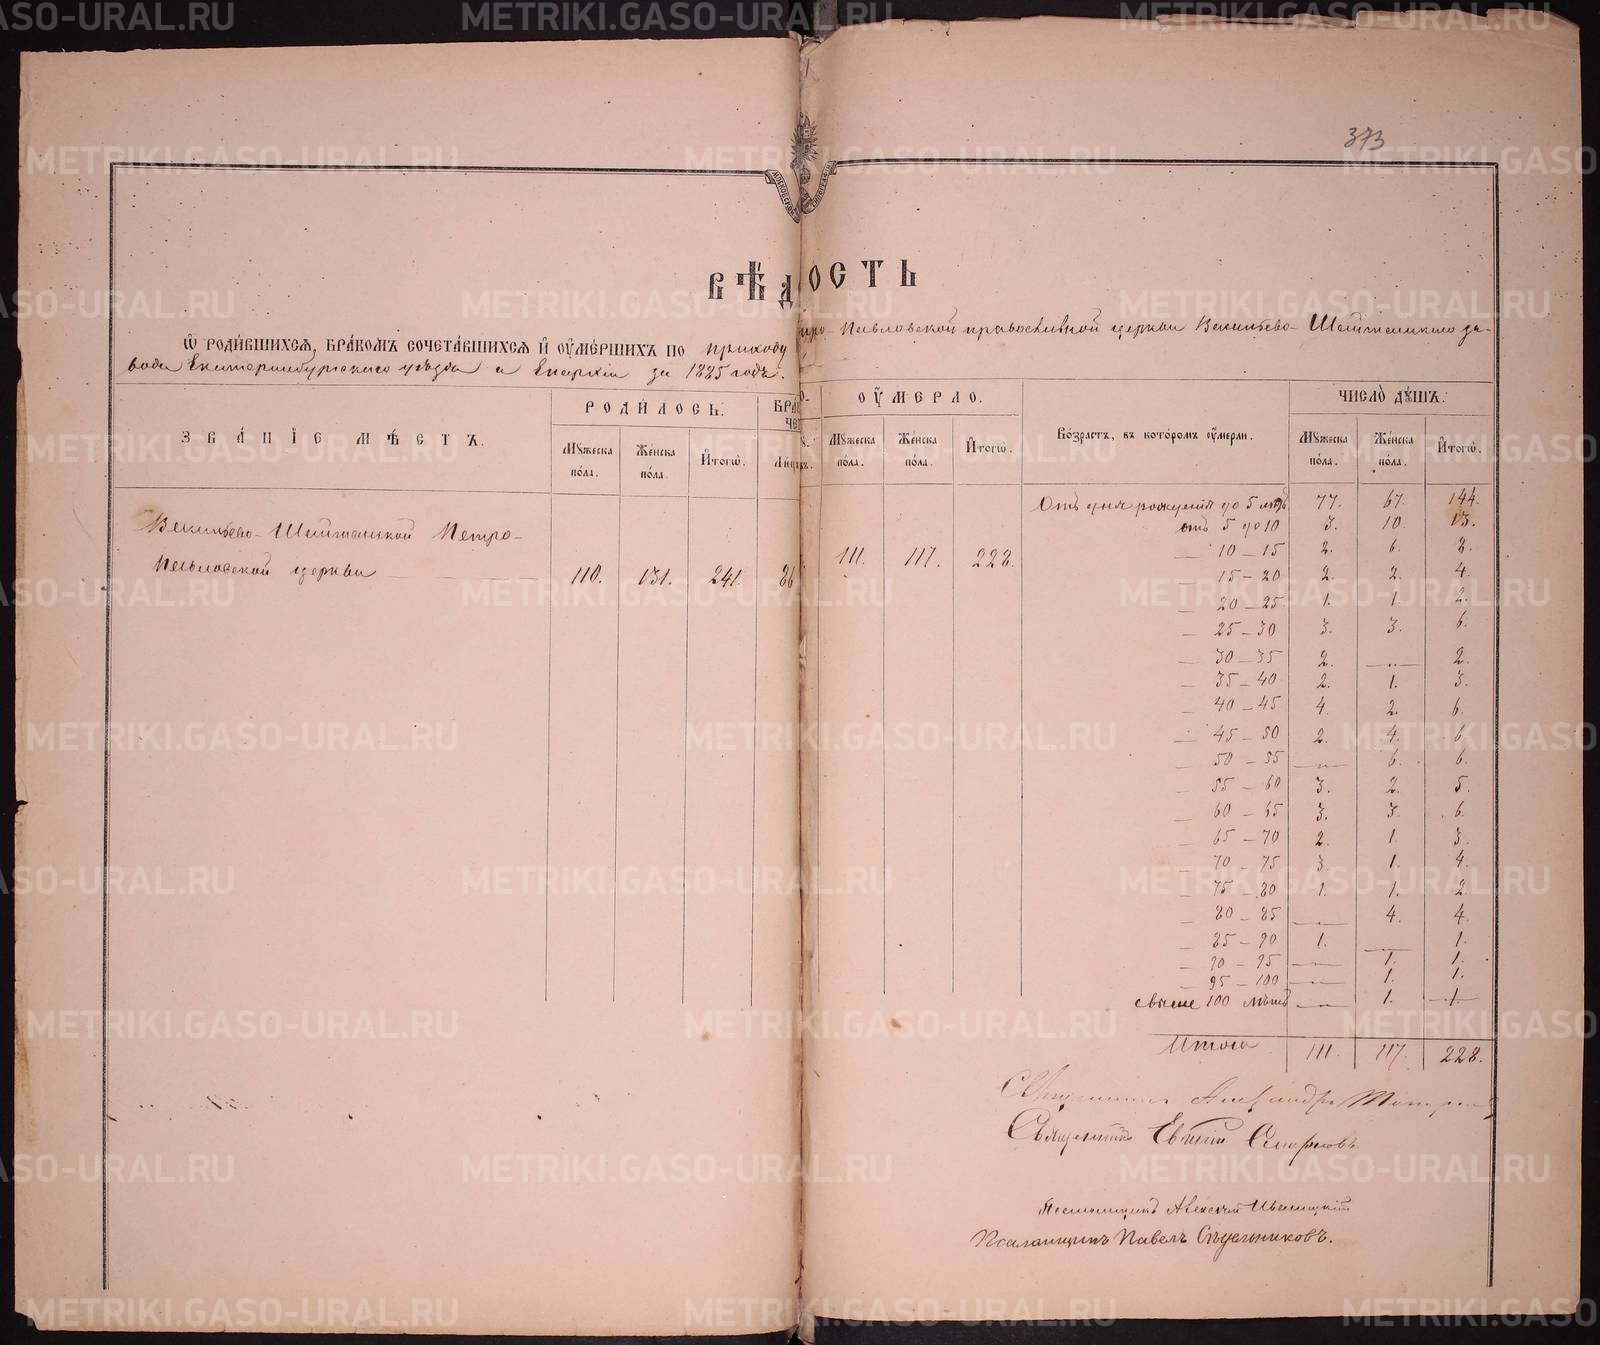 373
МОСКОВСКОЙ ТИПОГРАФІИ
ВѢДОСТЬ
Ѡ РОДИ́ВШИХСѦ, БРА́КОМЪ СОЧЕТА́ВШИХСѦ И҆ ОУ҆МЕ́РШИХЪ ПО приходу Петро-Павловской православной церкви Висимо-Шайтанскаго за-
вода Екатеринбургскаго уѣзда и Епархіи за 1885 годъ.
ЗВА́НІЕ МѢ́СТЪ.
РОДИ́ЛОСЬ.
Мꙋ́жеска по́ла.
Же́нска по́ла.
И҆тогѡ̀.
БРА
О-
ЧЕТ
Ли́ц
ъ.
ОУ҆́МЕРЛО.
Мꙋ́жеска по́ла.
Же́нска по́ла.
И҆тогѡ̀.
Во́зрастъ, въ кото́ромъ оу҆́мерли.
ЧИСЛО̀ ДꙊ́ШЪ.
Мꙋ́жеска по́ла.
Же́нска по́ла.
И҆тогѡ̀.
Петро-
Павловской церкви — 110. 131. 241. 86 111. 117. 228.
Отъ дня рожденія до 5 лѣтъ 77. 67. 144.
отъ 5 до 10 3. 10. 13.
— 10 — 15 2. 6. 8.
— 15 — 20 2. 2. 4.
— 20 — 25 1. 1. 2.
— 25 — 30 3. 3. 6.
— 30 — 35 2. — 2.
— 35 — 40 2. 1. 3.
— 40 — 45 4. 2. 6.
— 45 — 50 2. 4. 6.
— 50 — 55 — 6. 6.
— 55 — 60 3. 2. 5.
— 60 — 65 3. 3. 6.
— 65 — 70 2. 1. 3.
— 70 — 75 3. 1. 4.
— 75 — 80 1. 1. 2.
— 80 — 85 — 4. 4.
— 85 — 90 1. — 1.
— 90 — 95 — 1. 1.
— 95 — 100 — 1. 1.
свыше 100 лѣтъ — 1. 1.
Итого 111. 117. 228.
Священникъ Александръ
Священникъ Евгеній
Псаломщикъ Алексѣй
Псаломщикъ Павелъ
METRIKI.GASO-URAL.RU